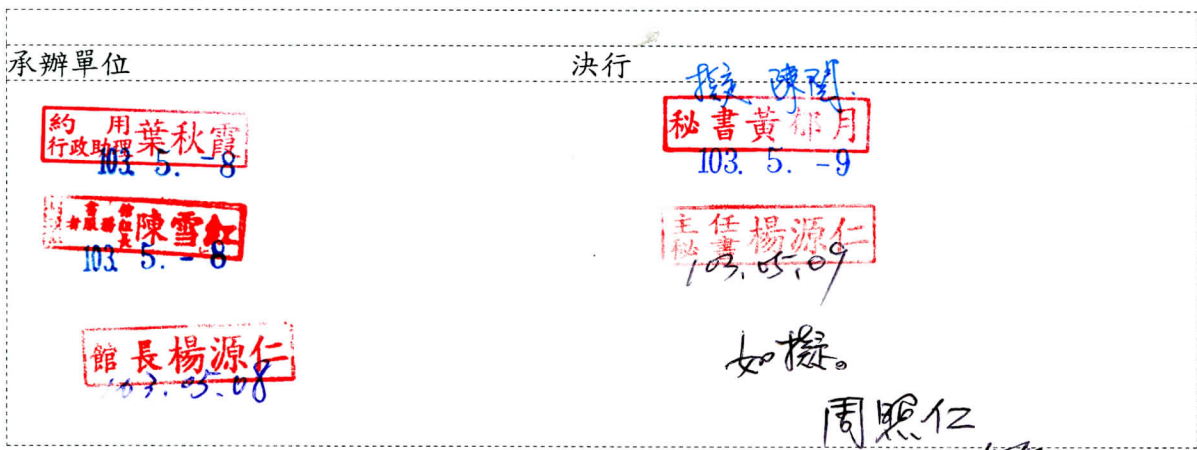 承辦單位
約用
行政助理 葉秋霞
103. 5. -8
陳雪紅
103. 5. -8
館長楊源仁
103.05.08
決行
陳閱.
秘書黃郁月
103. 5. -9
主任
秘書 楊源仁
103.05.09
如擬。
周照仁